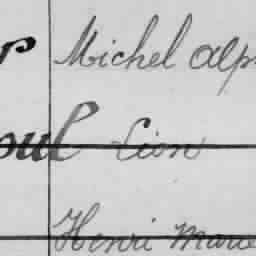 r Michel Alp
oul Lion
Henri Marie